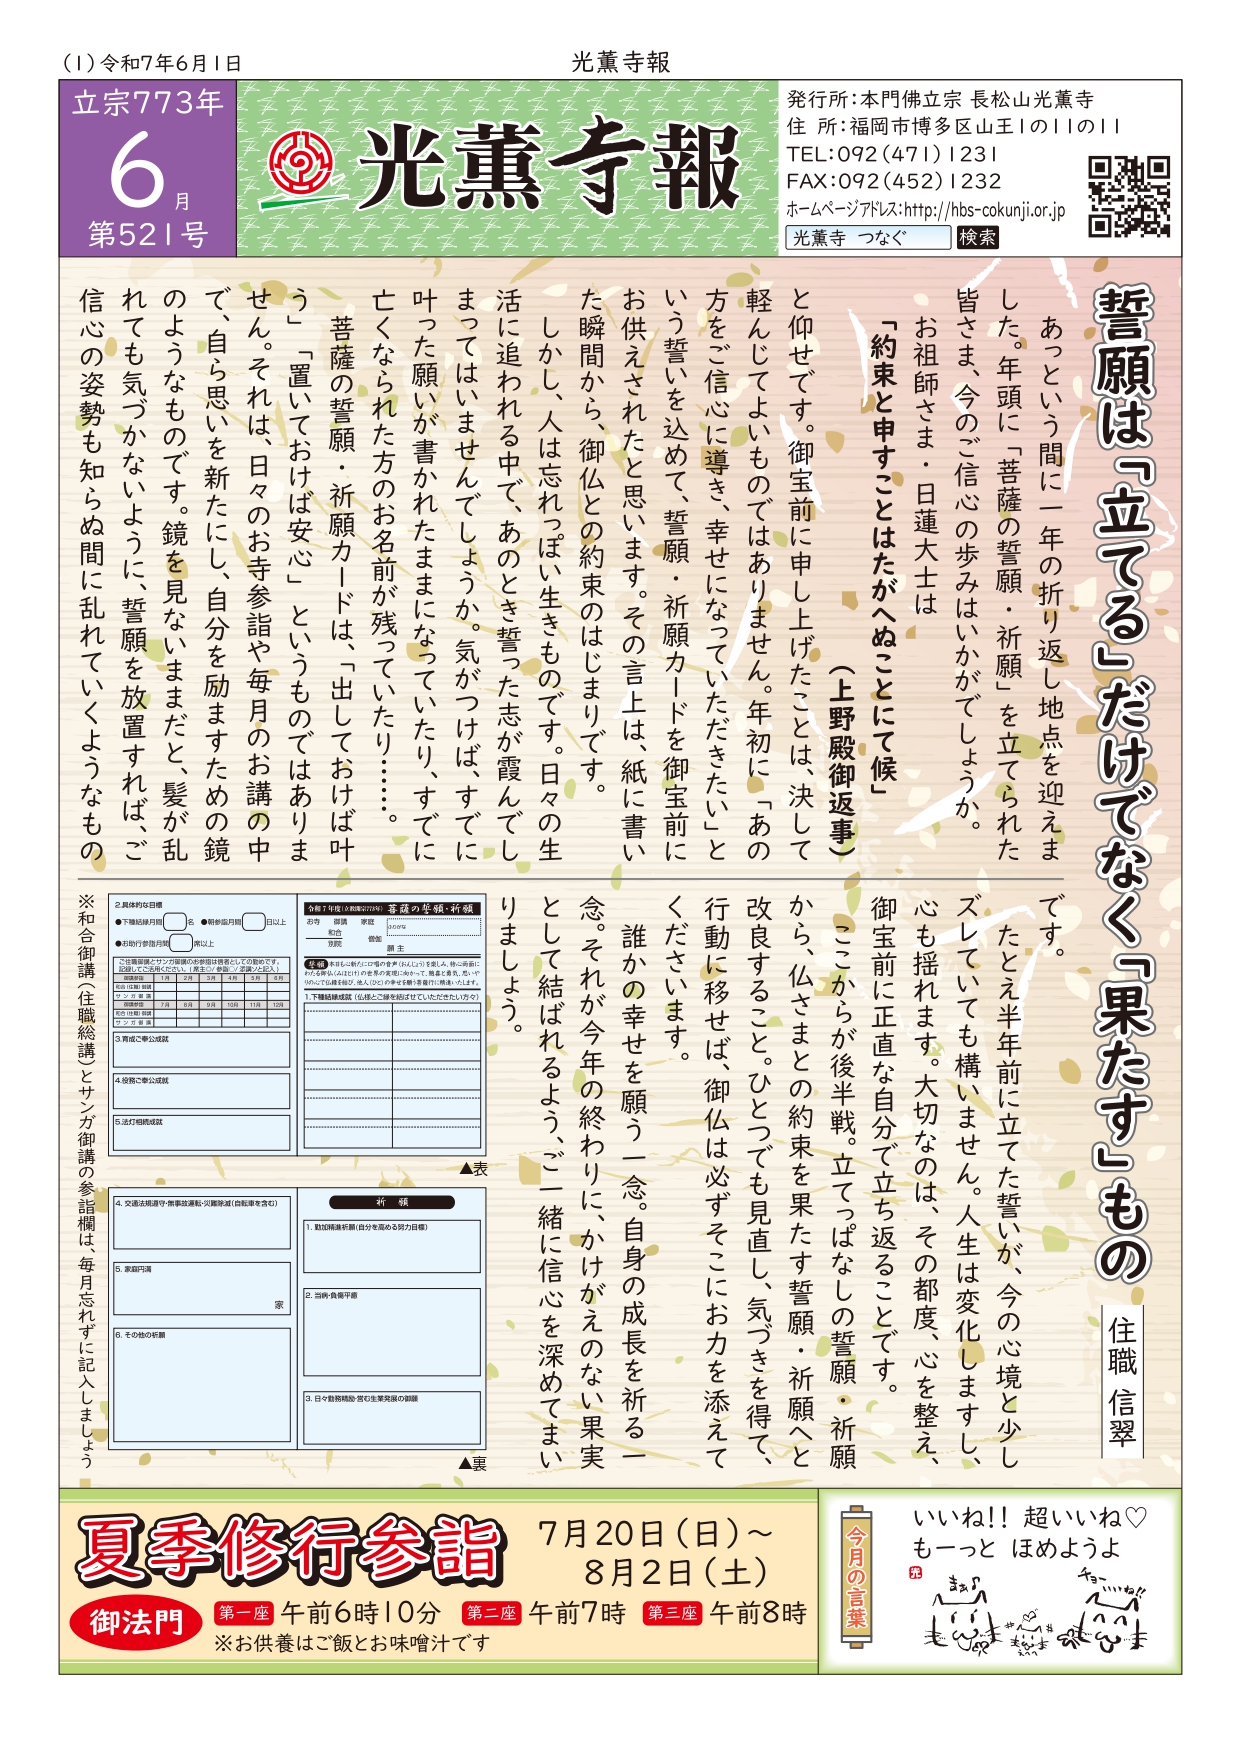 (1)令和7年6月1日
光薫寺報
立宗773年
6月
第521号
光薫寺報
発行所:本門佛立宗 長松山光薫寺
住 所:福岡市博多区山王1の11の11
TEL:092(471)1231
FAX:092(452)1232
ホームページアドレス:http://hbs-cokunji.or.jp
光薫寺 つなぐ 検索
誓願は「立てる」だけでなく「果たす」もの
住職 信翠
あっという間に一年の折り返し地点を迎えま
した。年頭に「菩薩の誓願・祈願」を立てられた
皆さま、今のご信心の歩みはいかがでしょうか。
お祖師さま・日蓮大士は
「約束と申すことはたがへぬことにて候」
(上野殿御返事)
と仰せです。御宝前に申し上げたことは、決して
軽んじてよいものではありません。年初に「あの
方をご信心に導き、幸せになっていただきたい」と
いう誓いを込めて、誓願・祈願カードを御宝前に
お供えされたと思います。その言上は、紙に書い
た瞬間から、御仏との約束のはじまりです。
しかし、人は忘れっぽい生きものです。日々の生
活に追われる中で、あのとき誓った志が霞んでし
まってはいませんでしょうか。気がつけば、すでに
叶った願いが書かれたままになっていたり、すでに
亡くなられた方のお名前が残っていたり……。
菩薩の誓願・祈願カードは、「出しておけば叶
う」「置いておけば安心」というものではありま
せん。それは、日々のお寺参詣や毎月のお講の中
で、自ら思いを新たにし、自分を励ますための鏡
のようなものです。鏡を見ないままだと、髪が乱
れても気づかないように、誓願を放置すれば、ご
信心の姿勢も知らぬ間に乱れていくようなもの
です。
たとえ半年前に立てた誓いが、今の心境と少し
ズレていても構いません。人生は変化しますし、
心も揺れます。大切なのは、その都度、心を整え、
御宝前に正直な自分で立ち返ることです。
ここからが後半戦。立てっぱなしの誓願・祈願
から、仏さまとの約束を果たす誓願・祈願へと
改良すること。ひとつでも見直し、気づきを得て、
行動に移せば、御仏は必ずそこにお力を添えて
くださいます。
誰かの幸せを願う一念。自身の成長を祈る一
念。それが今年の終わりに、かけがえのない果実
として結ばれるよう、ご一緒に信心を深めてまい
りましょう。
令和7年度(立教開宗773年) 菩薩の誓願・祈願
お寺 御講 家庭
和合
別院 僧伽
ふりがな
願主
誓願
1.下種結縁成就(仏様とご縁を結ばせていただきたい方々)
2.具体的な目標
●下種結縁月間 名 ●朝参詣月間 日以上
●お助行参詣月間 席以上
ご住職御講とサンガ御講のお参詣は信者としての勤めです。
記録してご活用ください。(席主◎/参詣○/添講△と記入)
御講参詣 1月 2月 3月 4月 5月 6月
和合(住職)御講
サンガ御講
御講参詣 7月 8月 9月 10月 11月 12月
和合(住職)御講
サンガ御講
3.育成ご奉公成就
4.役務ご奉公成就
5.法灯相続成就
▲表
祈願
1.勤加精進祈願(自分を高める努力目標)
2.当病・負傷平癒
3.日々勤務精励・営む生業発展の御願
4.交通法規遵守・無事故運転・災難除滅(自転車を含む)
5.家庭円満
家
6.その他の祈願
▲裏
※和合御講(住職総講)とサンガ御講の参詣欄は、毎月忘れずに記入しましょう
夏季修行参詣
7月20日(日)~
8月2日(土)
御法門
第一座 午前6時10分 第二座 午前7時 第三座 午前8時
※お供養はご飯とお味噌汁です
今月の言葉
いいね!! 超いいね♡
もーっと ほめようよ
光
まぁ♪
チョー
……ね!!